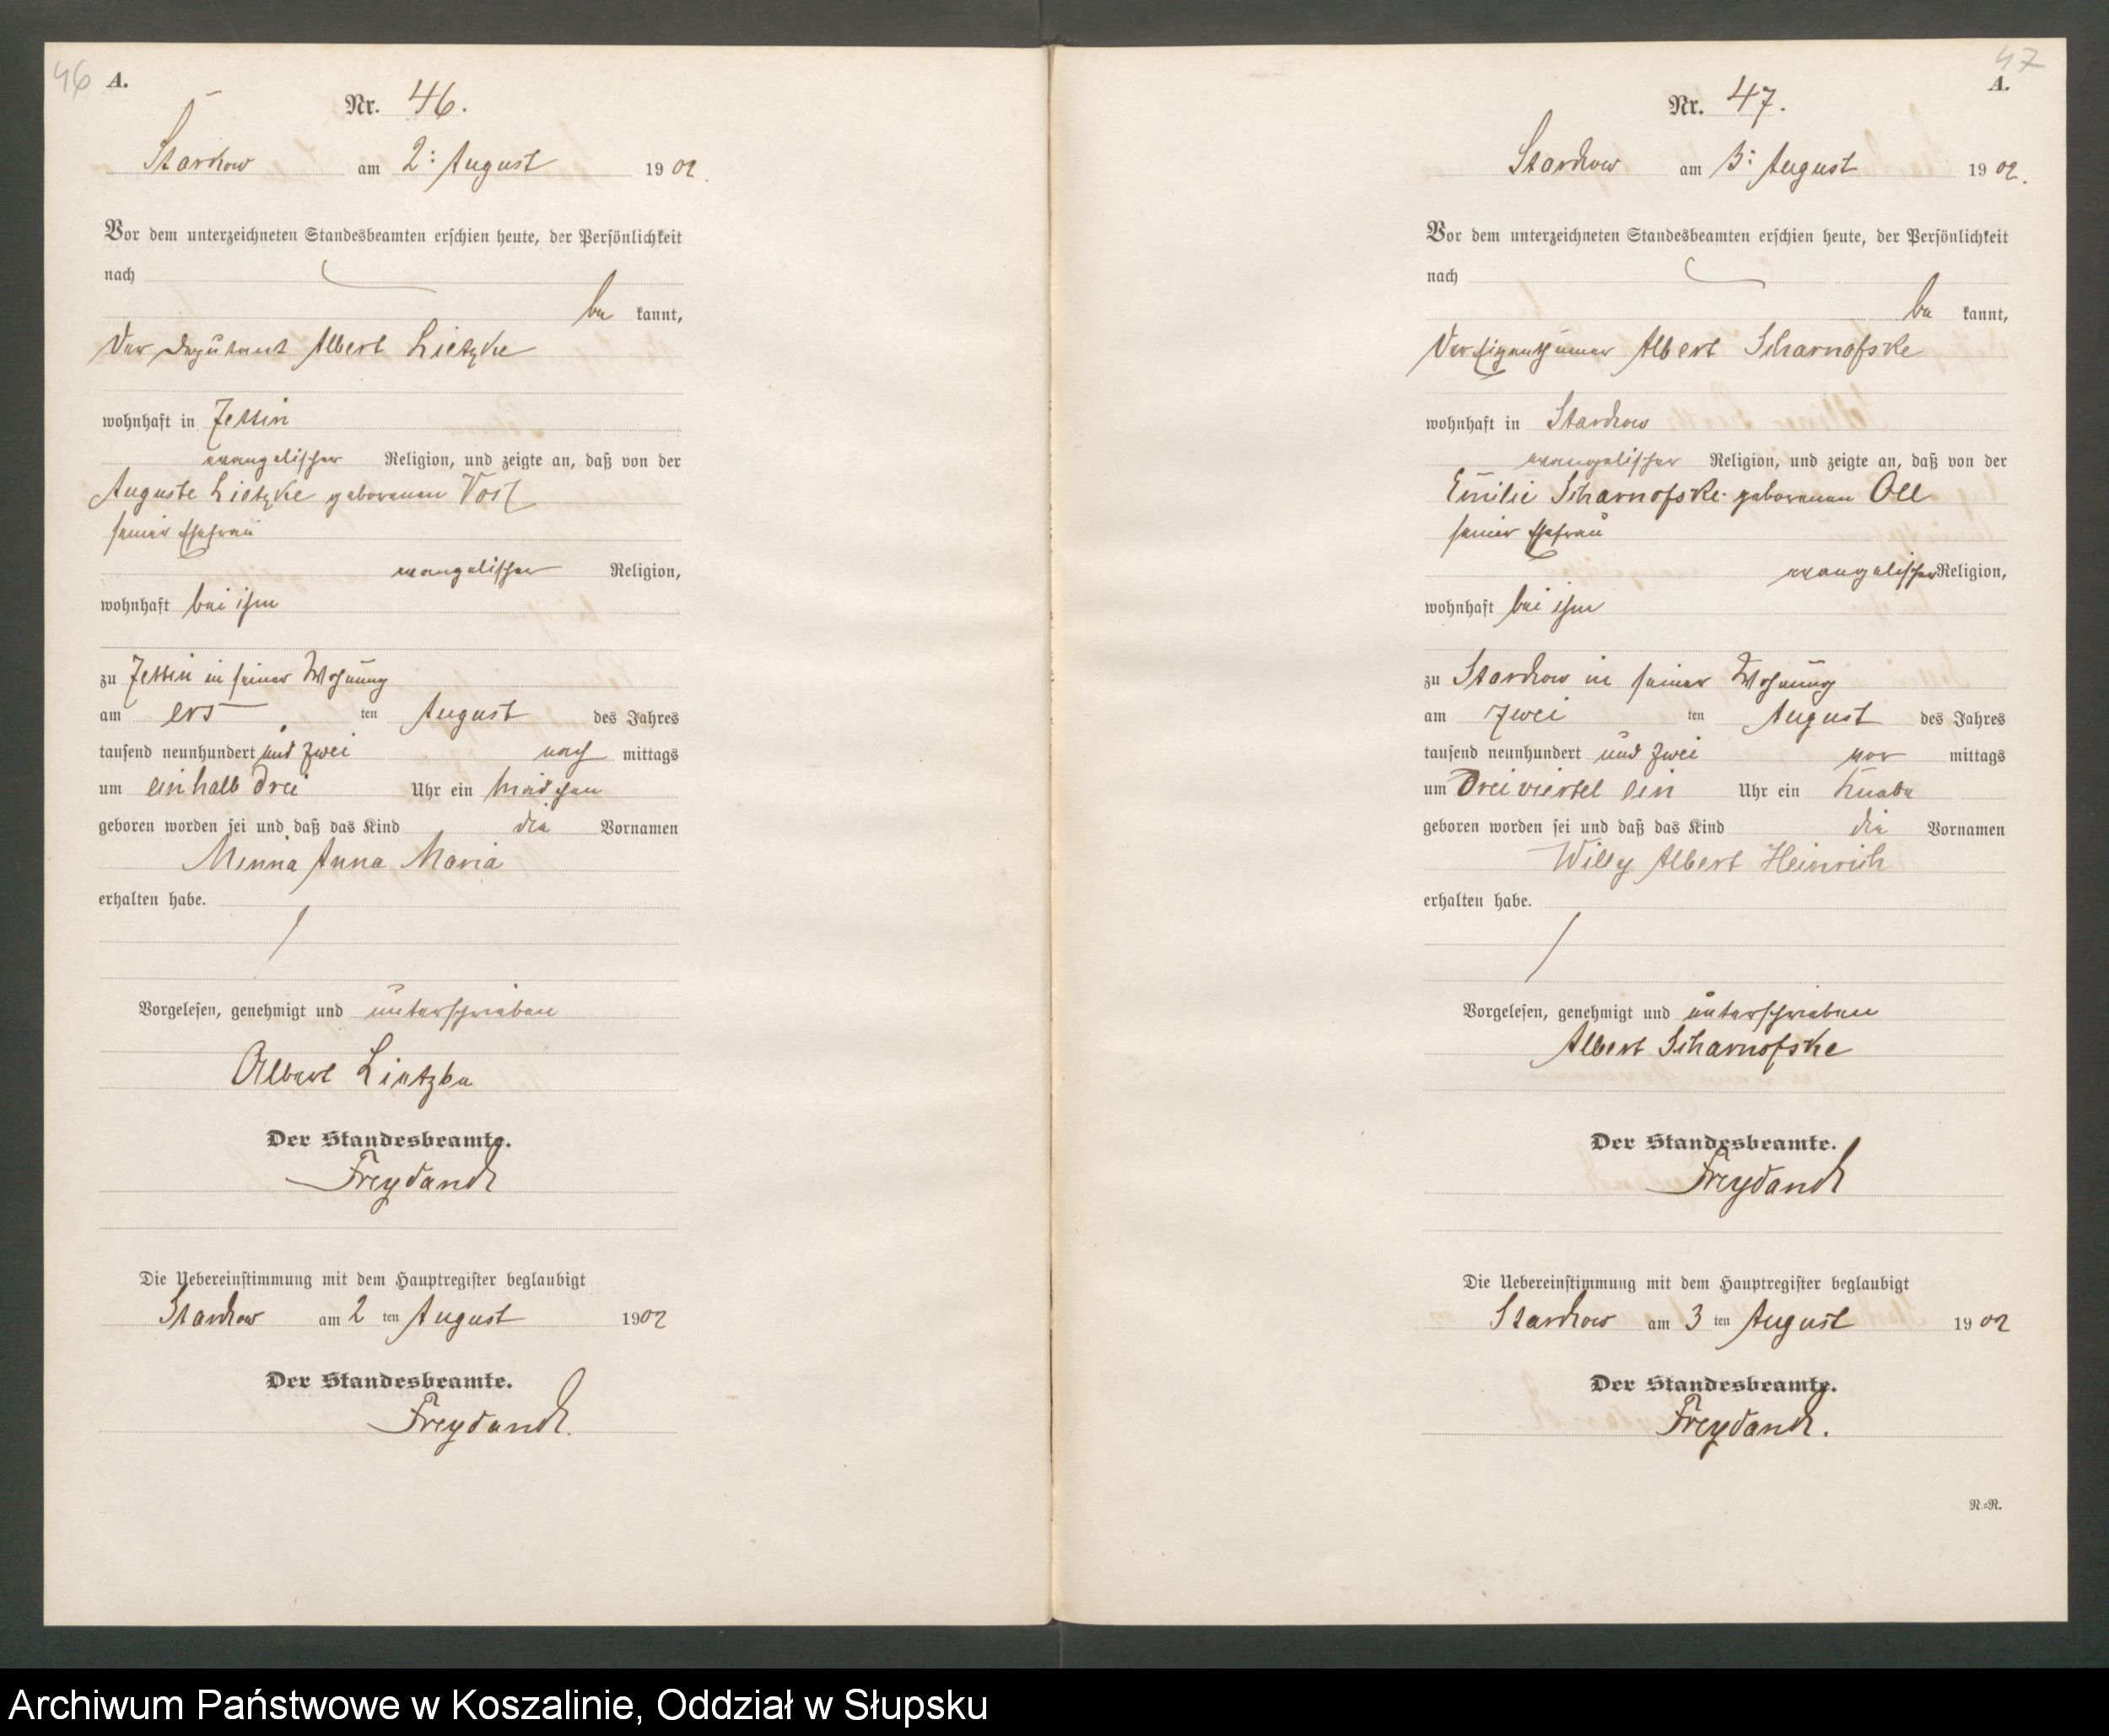 46 A.
Nr. 46.
Starkow am 2: August 1902.
Vor dem unterzeichneten Standesbeamten erschien heute, der Persönlichkeit
nach
be kannt,
der Deputant Albert Lietzke
wohnhaft in Jessin
evangelischer Religion, und zeigte an, daß von der
Auguste Lietzke geborenen
seiner Ehefrau
evangelischer Religion,
wohnhaft bei ihm
zu Jessin in seiner Wohnung
am ers ten August des Jahres
tausend neunhundert und zwei nach mittags
um ein halb drei Uhr ein Mädchen
geboren worden sei und daß das Kind die Vornamen
Minna Anna Maria
erhalten habe.
Vorgelesen, genehmigt und unterschrieben
Albert Lietzke
Der Standesbeamte.
Freydanck
Die Uebereinstimmung mit dem Hauptregister beglaubigt
Starckow am 2 ten August 1902
Der Standesbeamte.
Freydanck.
47
A.
Nr. 47.
Starckow am 3: August 1902.
Vor dem unterzeichneten Standesbeamten erschien heute, der Persönlichkeit
nach
be kannt,
der Eigenthümer Albert Scharnofske
wohnhaft in Starckow
evangelischer Religion, und zeigte an, daß von der
Emilie Scharnofske geborenen Oll
seiner Ehefrau
evangelischer Religion,
wohnhaft bei ihm
zu Starckow in seiner Wohnung
am zwei ten August des Jahres
tausend neunhundert und zwei vor mittags
um drei viertel ein Uhr ein Knabe
geboren worden sei und daß das Kind die Vornamen
Willy Albert Heinrich
erhalten habe.
Vorgelesen, genehmigt und unterschrieben
Albert Scharnofske
Der Standesbeamte.
Freydanck
Die Uebereinstimmung mit dem Hauptregister beglaubigt
Starckow am 3 ten August 1902
Der Standesbeamte.
Freydanck.
N.=N.
Archiwum Państwowe w Koszalinie, Oddział w Słupsku